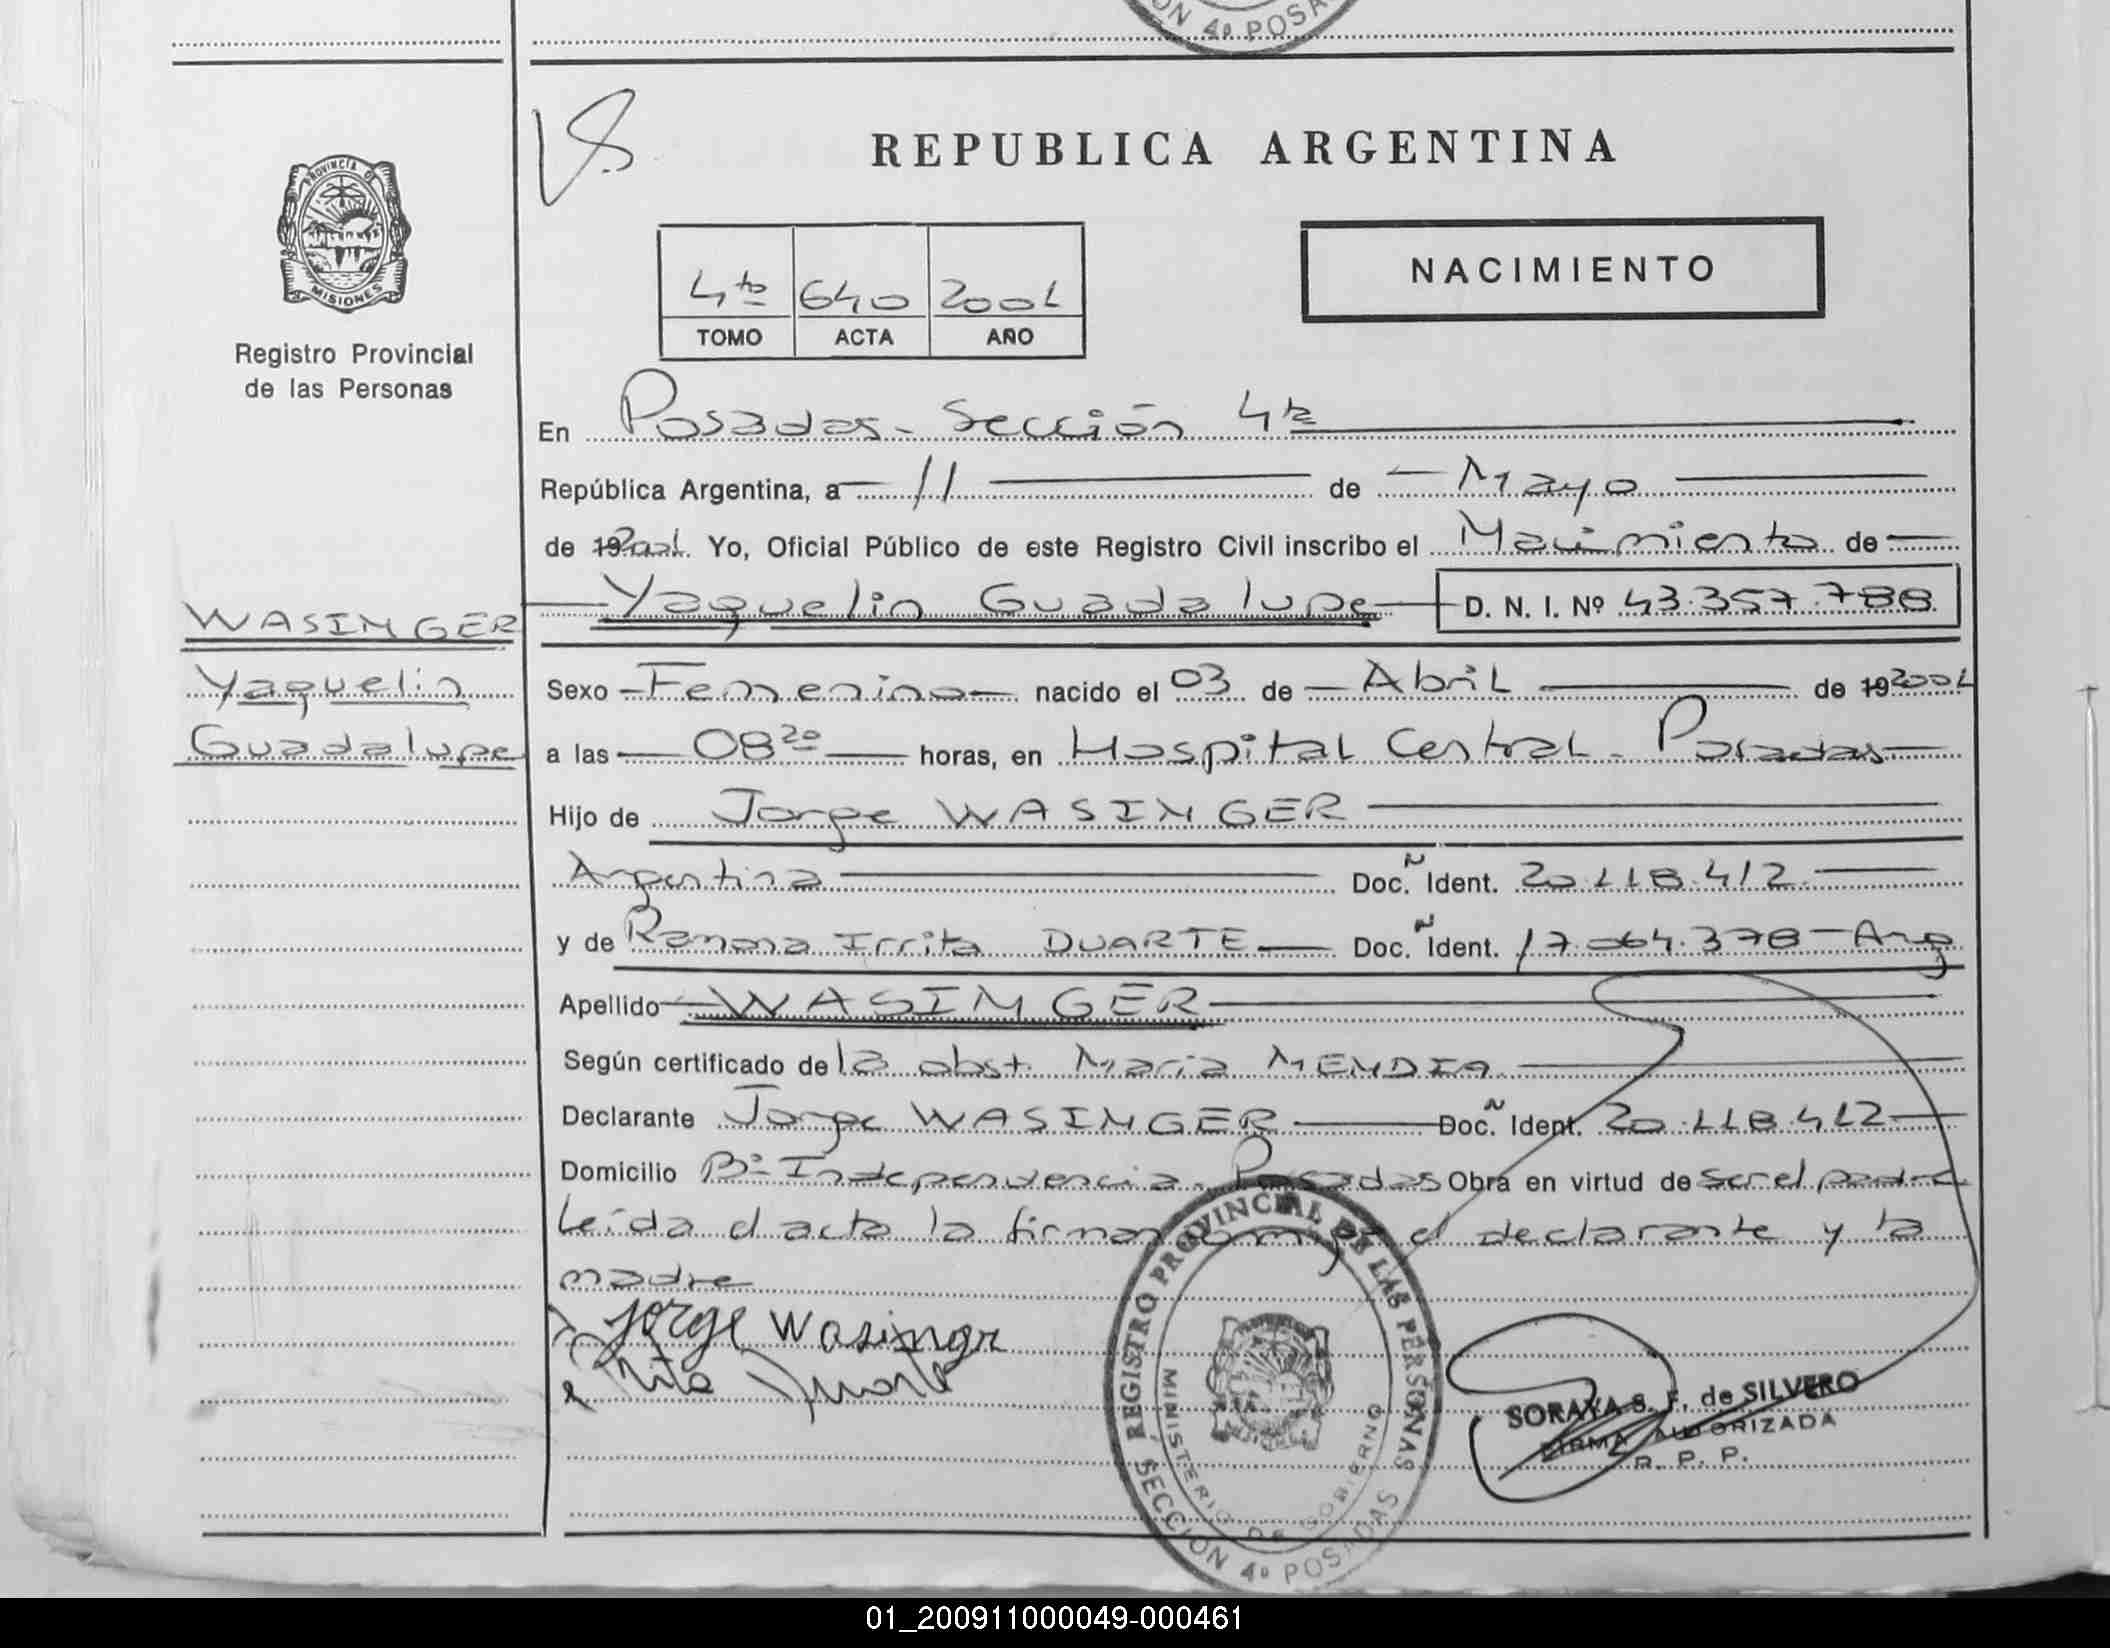 CION 4º POSA
REPUBLICA ARGENTINA
PROVINCIA DE
MISIONES
Registro Provincial
de las Personas
4to 640 2001
TOMO ACTA AÑO
NACIMIENTO
En Posadas - Sección 4ta
República Argentina, a 11 de Mayo
de 192001. Yo, Oficial Público de este Registro Civil inscribo el Nacimiento de
WASINGER
Yaquelin Guadalupe D. N. I. Nº 43.357.788
Yaquelin
Guadalupe
Sexo Femenino nacido el 03 de Abril de 192001
a las 08 20 horas, en Hospital Central - Posadas
Hijo de Jorge WASINGER
Argentina Doc. Ñ Ident. 20.118.412
y de Ramona Irrita DUARTE Doc. Ñ Ident. 17.064.378 - Arg
Apellido WASINGER
Según certificado de la obst. Maria MENDIA
Declarante Jorge WASINGER Doc. Ñ Ident. 20.118.412
Domicilio Bº Independencia - Posadas Obra en virtud de ser el padre
Leída el acta la firman conmigo el declarante y la
madre
Jorge Wasinger
Rita Duarte
REGISTRO PROVINCIAL DE LAS PERSONAS
MINISTERIO DE GOBIERNO
SECCION 4º POSADAS
SORAYA S. F. de SILVERO
FIRMA AUTORIZADA
R. P. P.
01_200911000049-000461